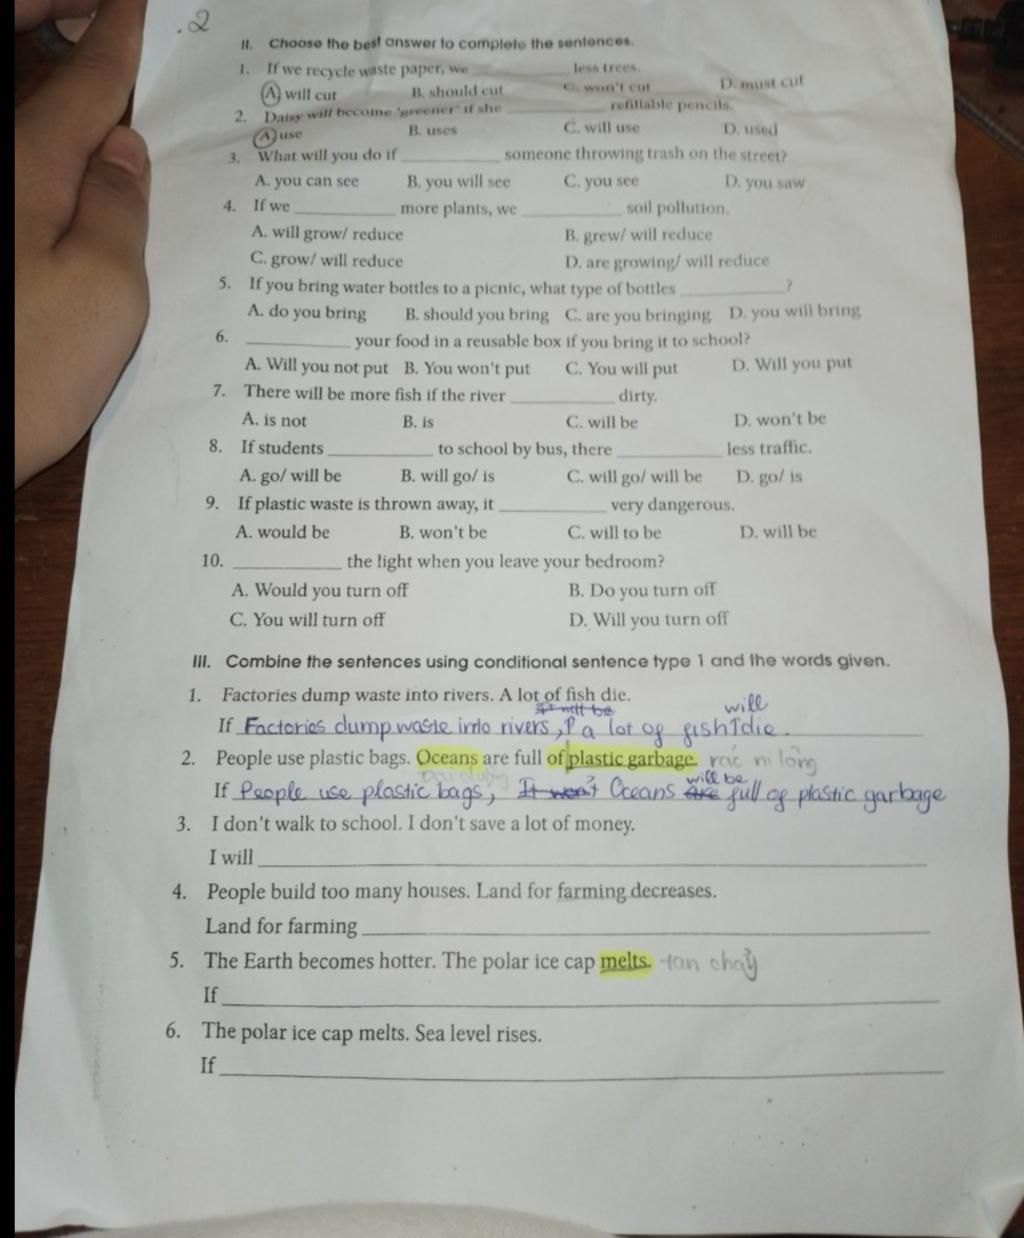 .2
II. Choose the best answer to complete the sentences.
1. If we recycle waste paper, we __________ less trees.
A. will cut B. should cut C. won't cut D. must cut
2. Daisy will become 'greener' if she __________ refillable pencils.
A. use B. uses C. will use D. used
3. What will you do if __________ someone throwing trash on the street?
A. you can see B. you will see C. you see D. you saw
4. If we __________ more plants, we __________ soil pollution.
A. will grow/ reduce B. grew/ will reduce
C. grow/ will reduce D. are growing/ will reduce
5. If you bring water bottles to a picnic, what type of bottles __________?
A. do you bring B. should you bring C. are you bringing D. you will bring
6. __________ your food in a reusable box if you bring it to school?
A. Will you not put B. You won't put C. You will put D. Will you put
7. There will be more fish if the river __________ dirty.
A. is not B. is C. will be D. won't be
8. If students __________ to school by bus, there __________ less traffic.
A. go/ will be B. will go/ is C. will go/ will be D. go/ is
9. If plastic waste is thrown away, it __________ very dangerous.
A. would be B. won't be C. will to be D. will be
10. __________ the light when you leave your bedroom?
A. Would you turn off B. Do you turn off
C. You will turn off D. Will you turn off
III. Combine the sentences using conditional sentence type 1 and the words given.
1. Factories dump waste into rivers. A lot of fish die.
will
If Factories dump waste into rivers, a lot of fish die.
2. People use plastic bags. Oceans are full of plastic garbage. rác ni lông
will be
If People use plastic bags, It won't Oceans are full of plastic garbage
3. I don't walk to school. I don't save a lot of money.
I will
4. People build too many houses. Land for farming decreases.
Land for farming
5. The Earth becomes hotter. The polar ice cap melts. tan chảy
If
6. The polar ice cap melts. Sea level rises.
If